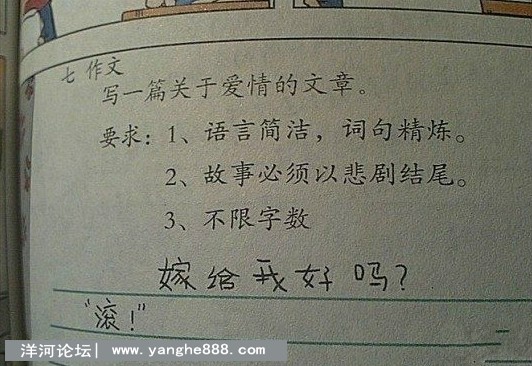 七 作文
写一篇关于爱情的文章。
要求：1、语言简洁，词句精炼。
2、故事必须以悲剧结尾。
3、不限字数
嫁给我好吗？
“滚！”
洋河论坛| www.yanghe888.com